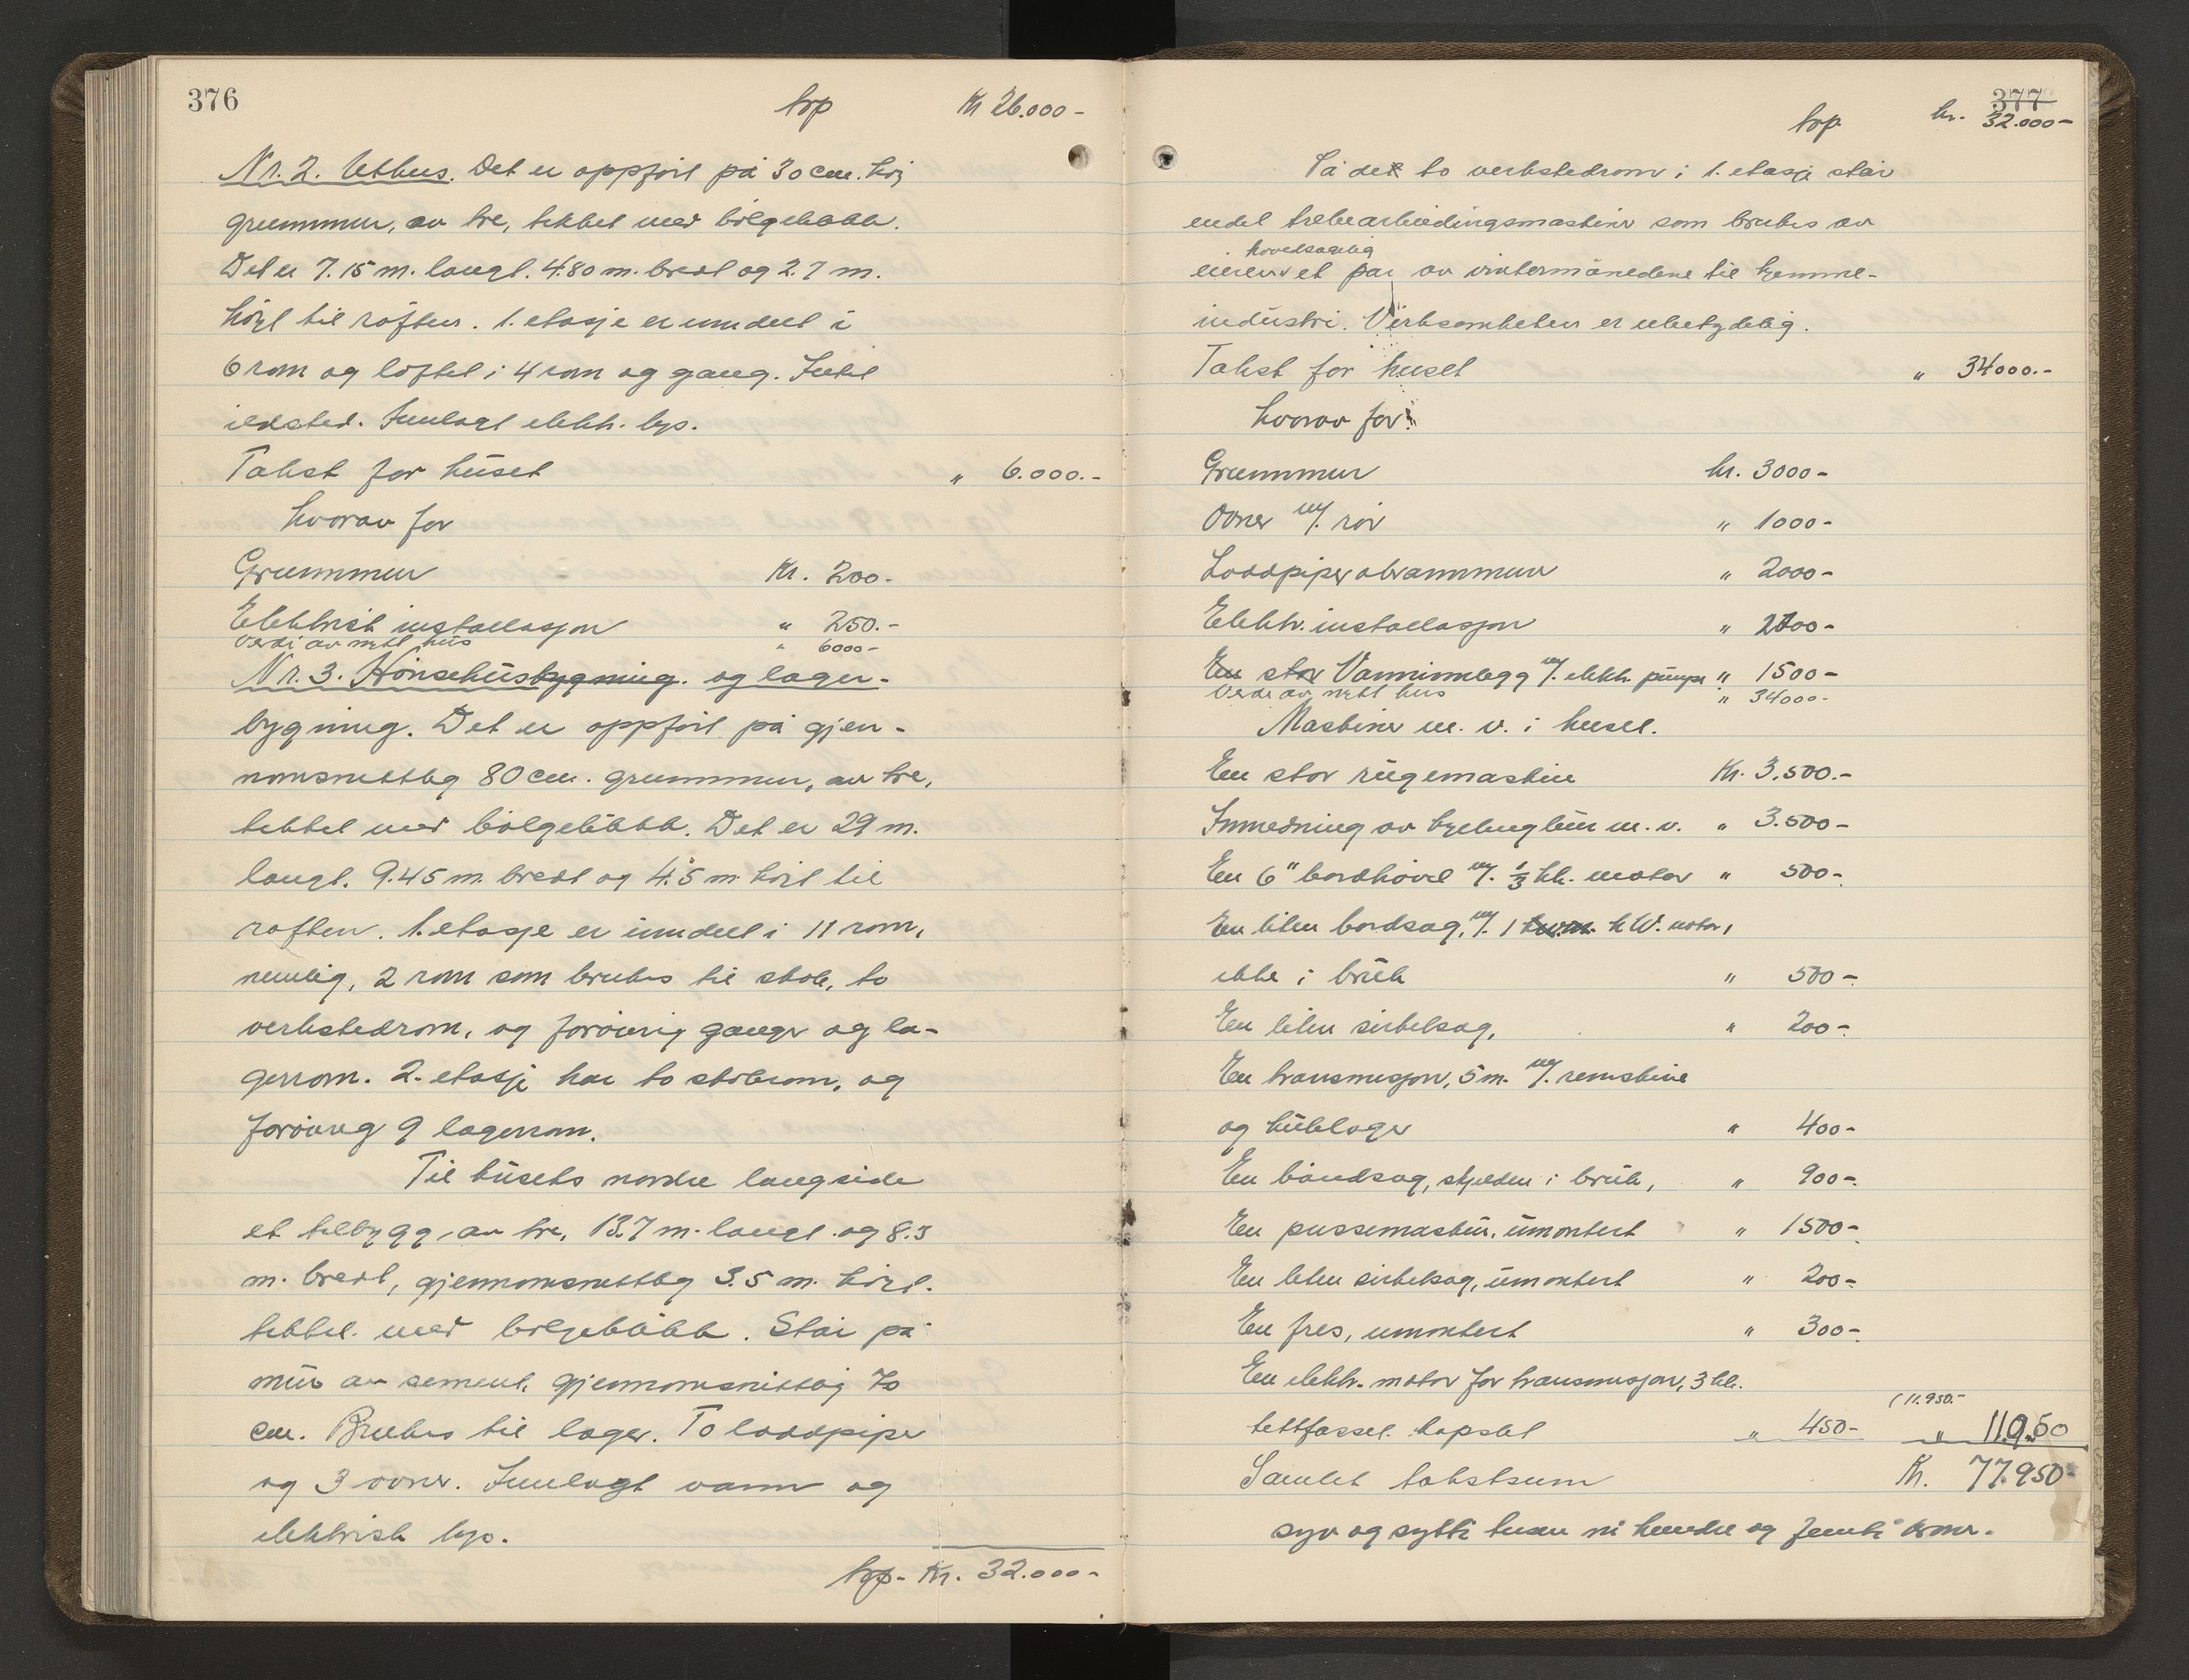 376
trp Kr 26.000-
Nr. 2. Uthus. Det er oppført på 30 cm. høj
grunnmur, av tre, tekket med bølgeblekk.
Det er 7.15 m. langt. 4.80 m. bredt og 2.7 m.
høyt til røsten. 1. etasje er inndelt i
6 rom og loftet i 4 rom og gang. Intet
ildsted. Innlagt elektr. lys.
Takst for huset " 6.000.-
hvorav for
Grunnmur Kr. 200.-
Elektrisk installasjon " 250.-
Verdi av nytt hus " 6000-
Nr. 3. Hønsehusbygning. og lager-
bygning. Det er oppført på gjen-
nomsnittlig 80 cm. grunnmur, av tre,
tekket med bølgeblikk. Det er 29 m.
langt. 9.45 m. bredt og 4.5 m. høyt til
røsten. 1. etasje er inndelt i 11 rom,
nemlig, 2 rom som brukes til stole, to
verkstedrom, og forøvrig ganger og la-
gerrom. 2. etasje har to rom, og
forøvrig 9 lagerrom.
Til husets nordre langside
et tilbygg, av tre, 13.7 m. langt og 8.3
m. bredt, gjennomsnittlig 3.5 m. høyt.
tekket med bølgeblikk. Står på
mur av sement, gjennomsnittlig 70
cm. Brukes til lager. To loddpiper
og 3 ovner. Innlagt vann og
elektrisk lys.
trp- Kr. 32.000-
377
trp kr. 32.000-
På det to verkstedrom i 1. etasje står
endel trebearbeidingsmaskiner som brukes av
hovedsagelig
eieren et par av vintermånedene til hjemme-
industri. Virksomheten er ubetydelig.
Takst for huset " 34000.-
hvorav for:
Grunnmur kr. 3000-
Ovner m/. rør " 1000-
Loddpiper brannmur " 2000-
Elektr. installasjon " 2700-
En stor Vanninnlegg m/. elektr. pumpe " 1500-
Verdi av nytt hus " 34000-
Maskiner m. v. i huset.
En stor rugemaskin Kr. 3.500.-
Innredning av kyllingbur m. v. " 3.500-
En 6" bordhøvel m/. 1/3 hk. motor " 500-
En liten bordsag, m/. 1 k W. motor,
ikke i bruk " 500-
En liten sirkelsag, " 200-
En transmisjon, 5 m. m/. remskive
og kulelager " 400-
En båndsag, skjelden i bruk, " 900-
En pussemaskin, umontert " 1500-
En liten sirkelsag, umontert " 200-
En fres, umontert " 300-
En elektr. motor for transmisjon, 3 hk.
(11.950.-
tettfasset kapslet " 450- " 11950
Samlet takstsum Kr. 77.950-
syv og sytti tusen ni hundre og femti kroner.